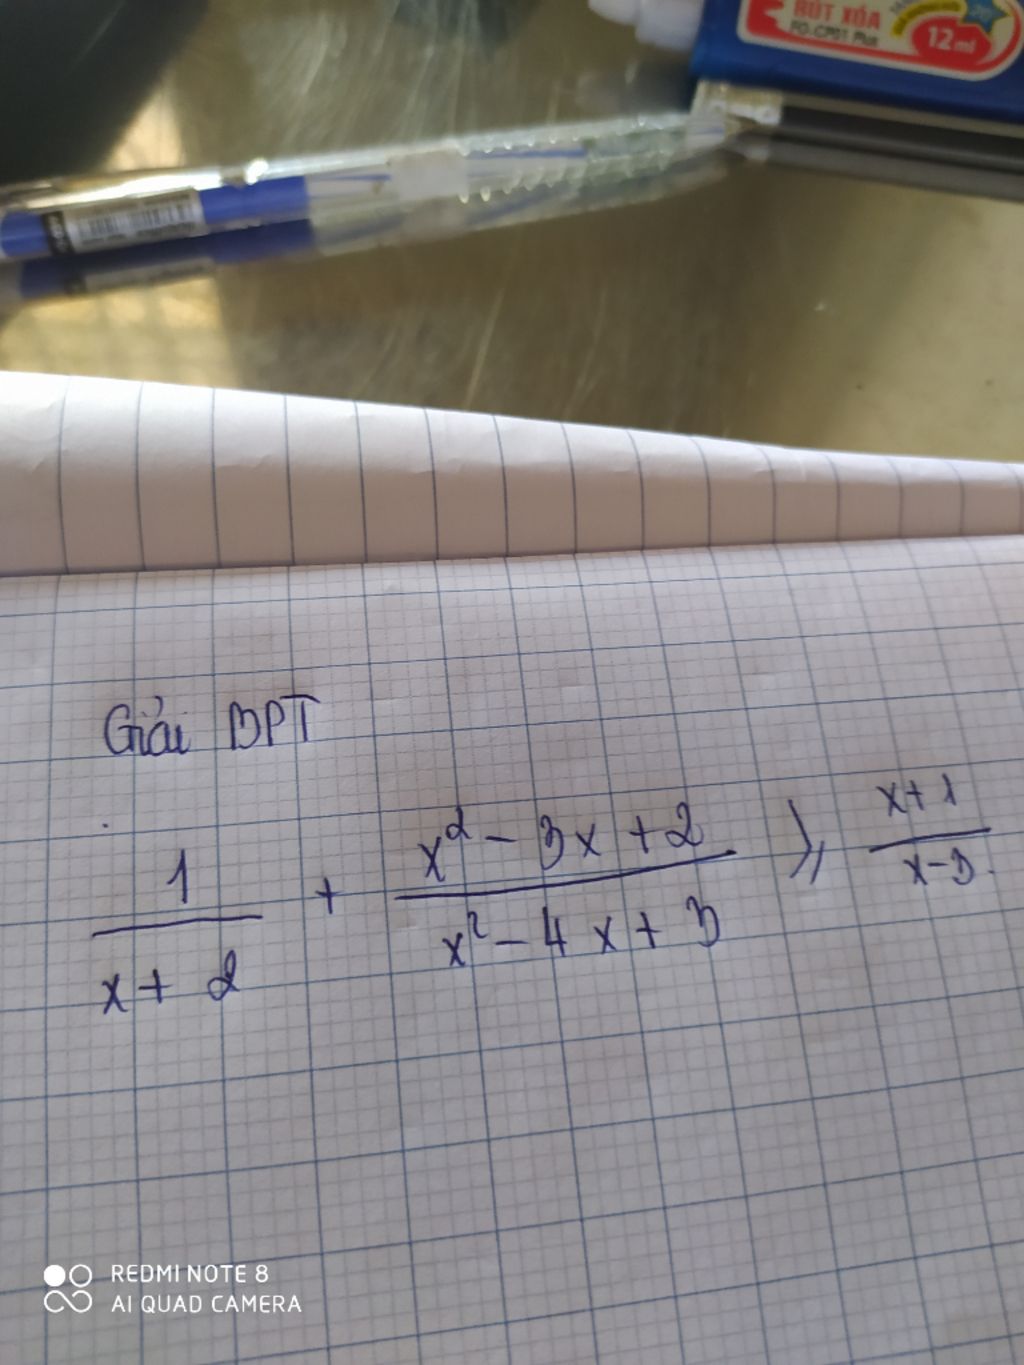 BÚT XÓA
FO-CP01 Plus
12ml
Giải BPT
1/(x + 2) + (x² - 3x + 2)/(x² - 4x + 3) ⩾ (x+1)/(x-3).
REDMI NOTE 8
AI QUAD CAMERA